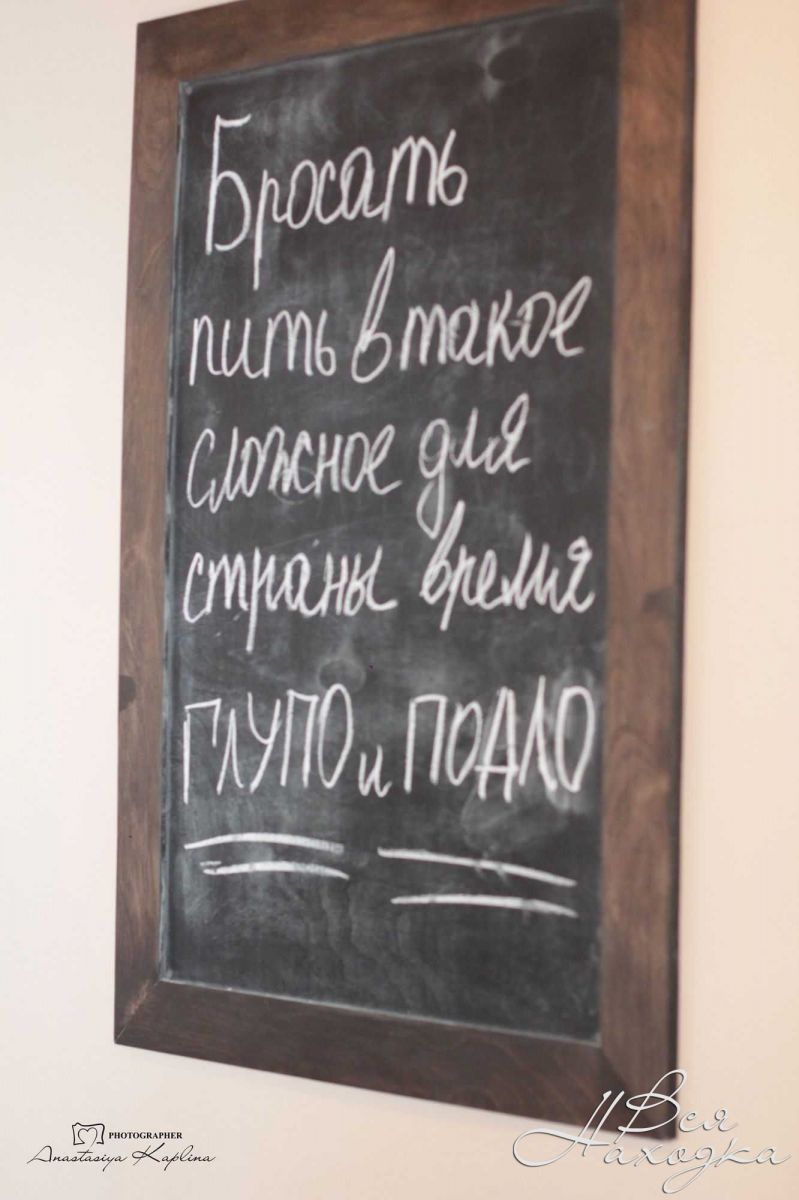 Бросать
пить в такое
сложное для
страны время
ГЛУПО и ПОДЛО
PHOTOGRAPHER
Anastasiya Kaplina
Вся
Находка